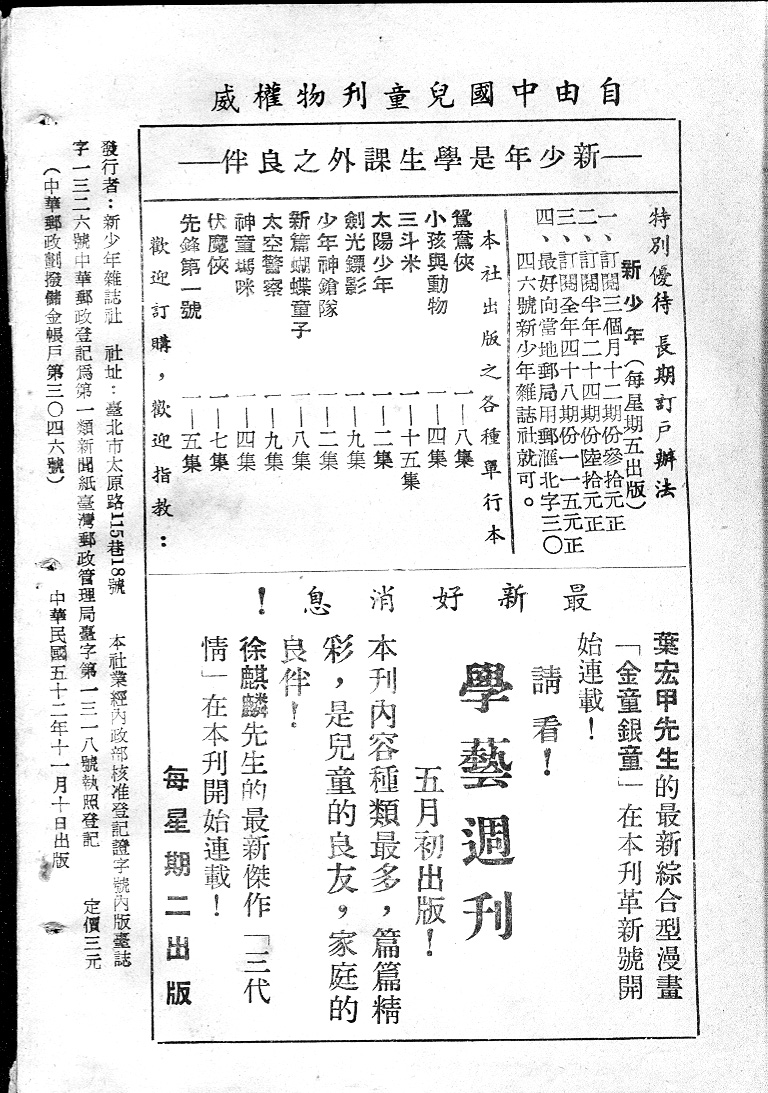 自由中國兒童刊物權威
—新少年是學生課外之良伴—
特別優待 長期訂戶辦法
新少年（每星期五出版）
一、訂閱三個月十二期份參拾元正
二、訂閱半年二十四期份陸拾元正
三、訂閱全年四十八期份一一五元正
四、最好向當地郵局用郵滙北字三〇
四六號新少年雜誌社就可。
本社出版之各種單行本
鴛鴦俠 一—八集
小孩與動物 一—四集
三斗米 一—十五集
太陽少年 一—二集
劍光鏢影 一—九集
少年神鎗隊 一—二集
新篇蝴蝶童子 一—八集
太空警察 一—九集
神童瑪咪 一—四集
伏魔俠 一—七集
先鋒第一號 一—五集
歡迎訂購，歡迎指教：
最新好消息！
葉宏甲先生的最新綜合型漫畫
「金童銀童」在本刊革新號開
始連載！
請看！
學藝週刊
五月初出版！
本刊內容種類最多，篇篇精
彩，是兒童的良友，家庭的
良伴！
徐麒麟先生的最新傑作「三代
情」在本刊開始連載！
每星期二出版
發行者：新少年雜誌社 社址：臺北市太原路115巷18號 本社業經內政部核准登記證字號內版臺誌
字一三二六號中華郵政登記爲第一類新聞紙臺灣郵政管理局臺字第一三一八號執照登記 定價三元
（中華郵政劃撥儲金帳戶第三〇四六號） 中華民國五十二年十一月十日出版